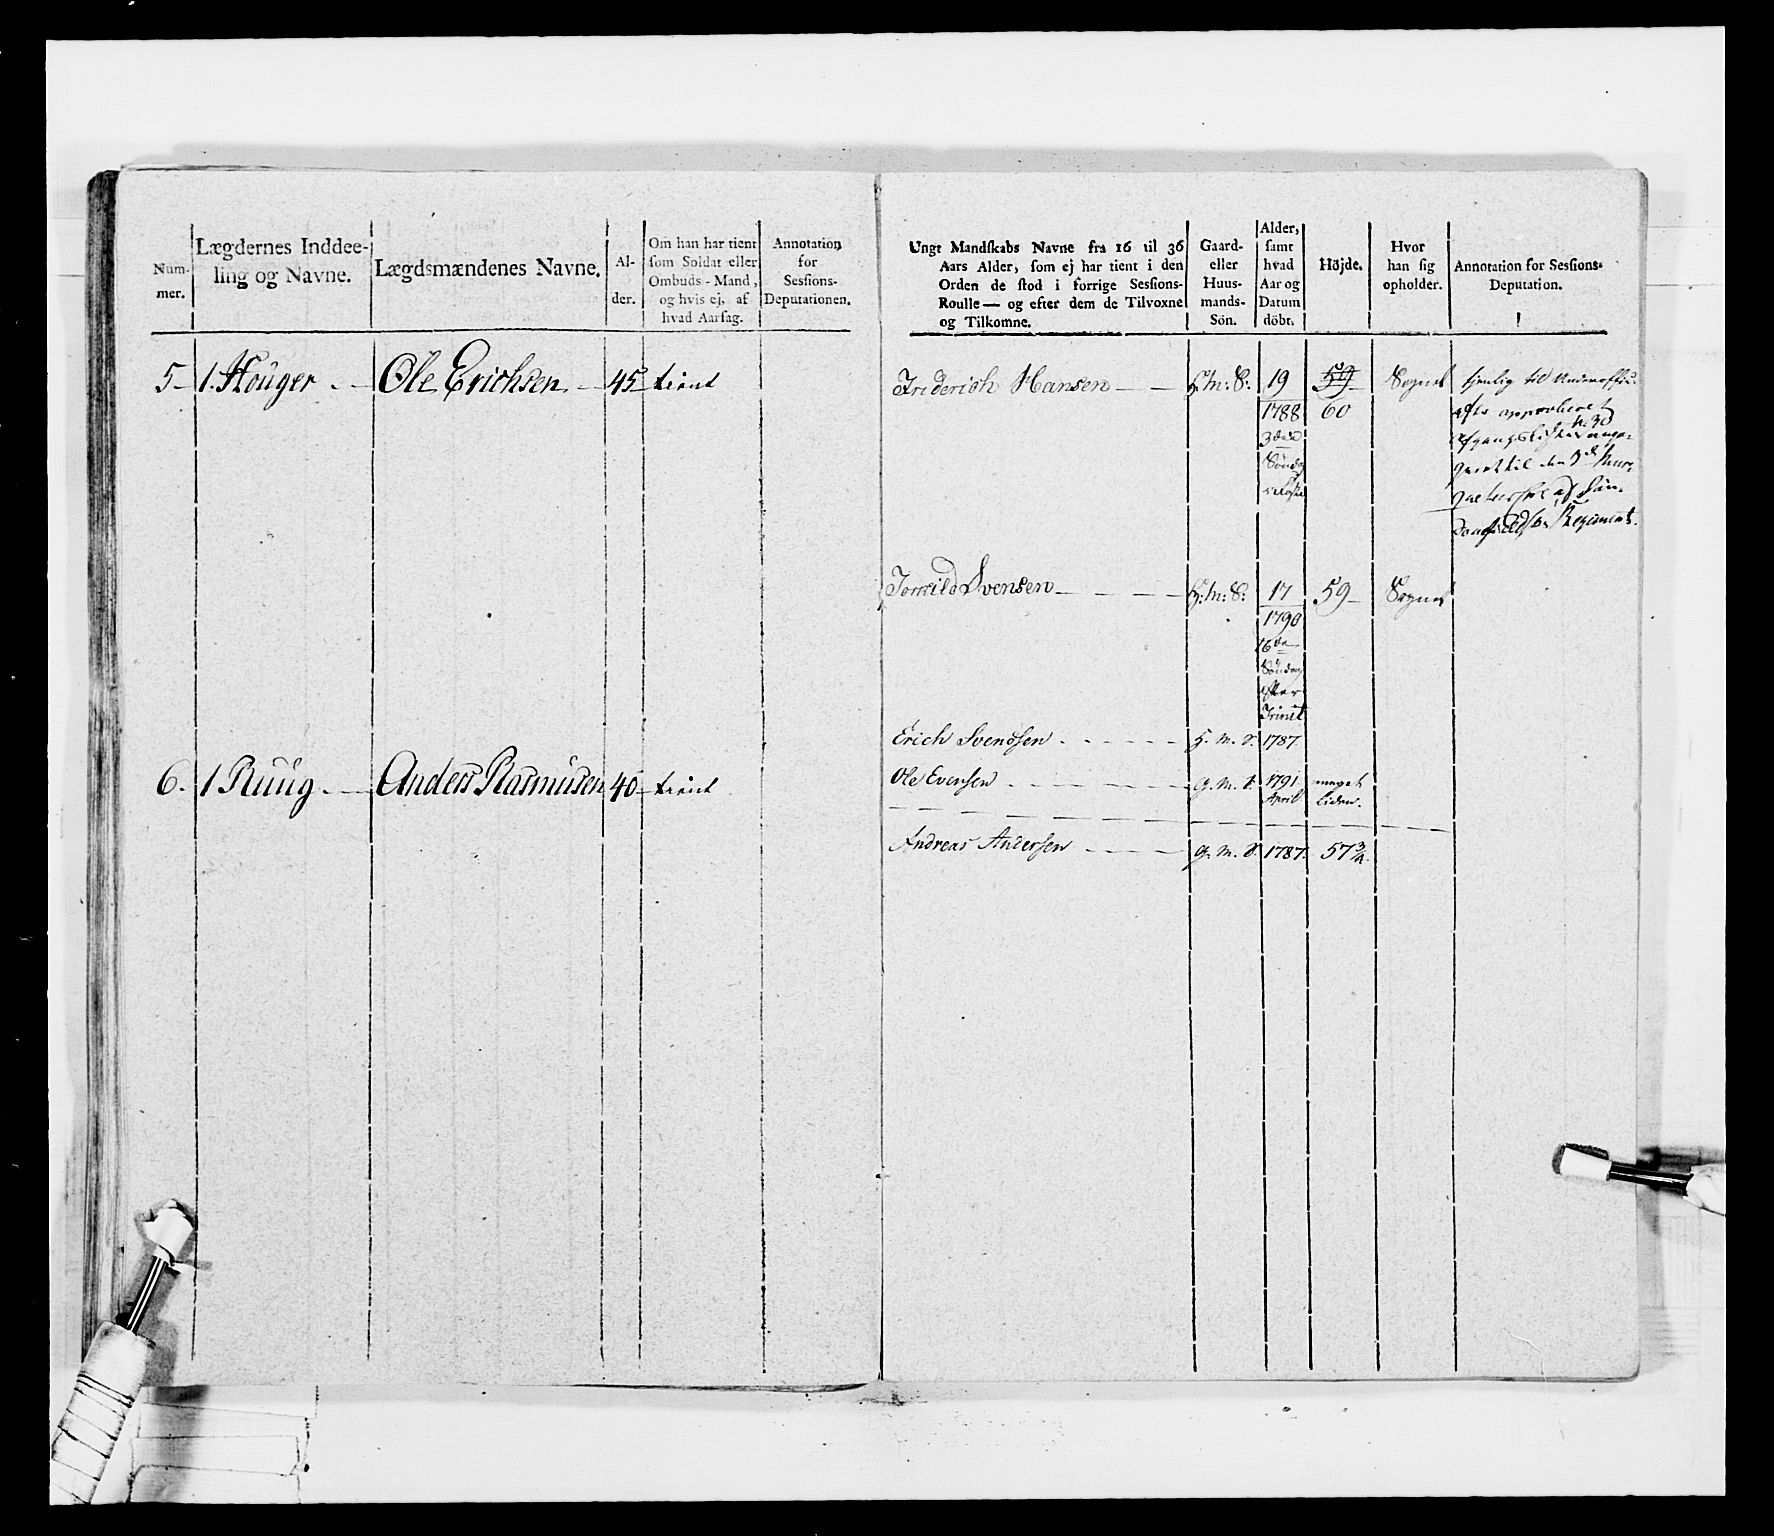 Num-
mer.
Lægdernes Inddee-
ling og Navne.
Lægdsmændenes Navne.
Al-
der.
Om han har tient
ſom Soldat eller
Ombuds-Mand,
og hvis ej, af
hvad Aarſag.
Annotation
for
Sesſions-
Deputationen.
5- 1. Houger. - Ole Erichsen - 45 - tient
6. 1 Ruug. - Anders Rasmusen 40 - tient
Ungt Mandſkabs Navne fra 16 til 36
Aars Alder, ſom ej har tient i den
Orden de ſtod i forrige Sesſions-
Roulle — og efter dem de Tilvoxne
og Tilkomne.
Gaard-
eller
Huus-
mands-
Sön.
Alder,
ſamt
hvad
Aar og
Datum
döbt.
Höjde.
Hvor
han ſig
opholder.
Annotation for Sesſions-
Deputation.
Friderich Hansen - - H: M: S: 19 59 Sognet
1788 60
3de
Søndag
tienlig til
afgangsliste No 30
til den
Regiment.
Svensen - - - H: M: S: 17 59 Sognet
1790
16de
Søndag
efter
Trinit
Erich Svendsen - - - H. M. S. 1787.
Ole Evensen - - - G. M. S. 1791 meget
April liden.
Andreas Andersen - - - G. M. S. 1787. 57 3/4.